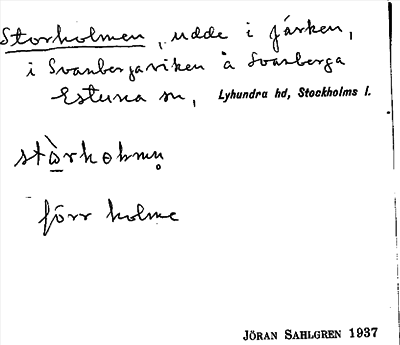 Storholmen, udde i Järken,
i Svanbergaviken å Svanberga
Estuna sn, Lyhundra hd, Stockholms l.
stòrhɵlmn̥
förr holme
JÖRAN SAHLGREN 1937